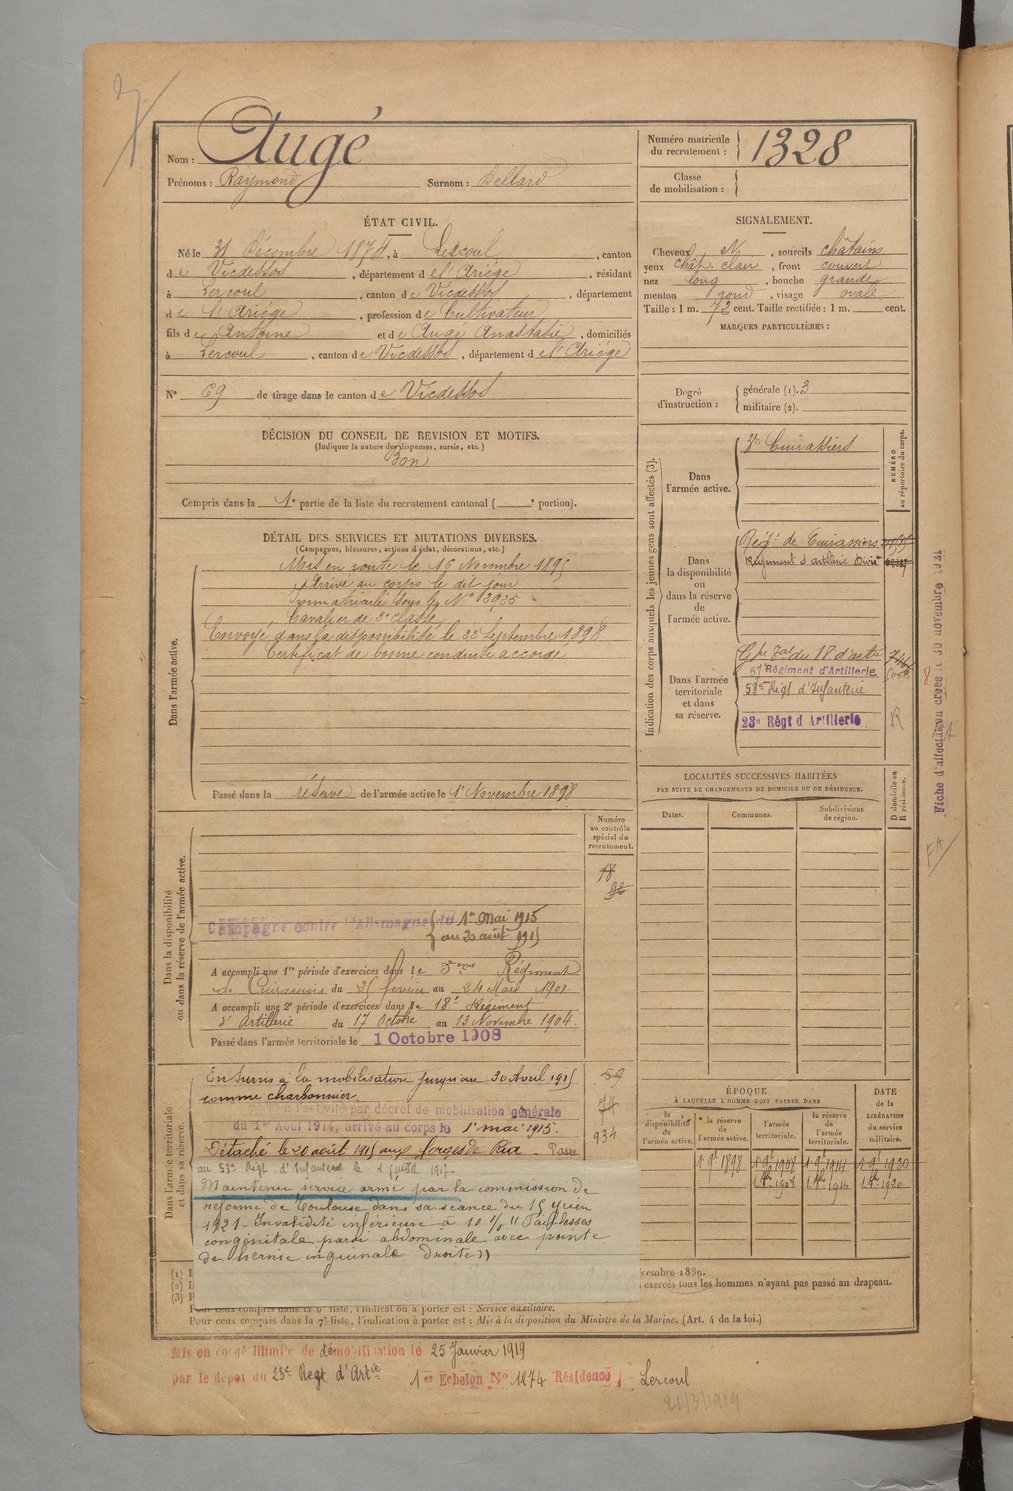 Nom : Augé
Prénoms : Raymond Surnom : Bellard
Numéro matricule du recrutement : 1328
Classe de mobilisation :
ÉTAT CIVIL.
Né le 31 Décembre 1874, à Lercoul, canton
de Vicdessos, département de l'Ariège, résidant
à Lercoul, canton de Vicdessos, département
de l'Ariège, profession de Cultivateur
fils de Antoine et de Augé Anastasie, domiciliés
à Lercoul, canton de Vicdessos, département de l'Ariège
N° 69 de tirage dans le canton de Vicdessos
SIGNALEMENT.
Cheveux N, sourcils châtains
yeux chât. clair, front couvert
nez long, bouche grande
menton rond, visage ovale
Taille : 1 m. 72 cent. Taille rectifiée : 1 m. cent.
MARQUES PARTICULIÈRES :
Degré d'instruction : générale (1). 3
militaire (2).
DÉCISION DU CONSEIL DE REVISION ET MOTIFS.
(Indiquer la nature des dispenses, sursis, etc.)
Bon
Compris dans la 1e partie de la liste du recrutement cantonal ( e portion).
DÉTAIL DES SERVICES ET MUTATIONS DIVERSES.
(Campagnes, blessures, actions d'éclat, décorations, etc.)
Dans l'armée active.
Mis en route le 16 Novembre 1895
Arrivé au corps le dit jour
immatriculé sous le N° 3925
Cavalier de 2e classe
Envoyé dans la disponibilité le 22 Septembre 1898
Certificat de bonne conduite accordé
Passé dans la réserve de l'armée active le 1 Novembre 1898
Indication des corps auxquels les jeunes gens sont affectés (3).
NUMÉRO au répertoire du corps.
Dans l'armée active.
3e Cuirassiers
Dans la disponibilité ou dans la réserve de l'armée active.
Régt de Cuirassiers
Régiment d'artillerie
Dans l'armée territoriale et dans sa réserve.
Gpe Tal du 18 d'arti 746
57 Régiment d'Artillerie
53e Régt d'Infanterie
23e Régt d'Artillerie R
Fiche d'affectation créée le 30 novembre 1921
LOCALITÉS SUCCESSIVES HABITÉES
PAR SUITE DE CHANGEMENTS DE DOMICILE OU DE RÉSIDENCE.
Dates. Communes. Subdivisions de région. D domicile ou R résidence.
Dans la disponibilité ou dans la réserve de l'armée active.
Numéro au contrôle spécial du recrutement.
Campagne contre l'Allemagne du 1er Mai 1915
au 20 août 1915
A accompli une 1re période d'exercices dans le 3eme Régiment
de Cuirassiers du 25 février au 24 Mars 1901
A accompli une 2e période d'exercices dans le 18e Régiment
d'Artillerie du 17 Octobre au 13 Novembre 1904.
Passé dans l'armée territoriale le 1 Octobre 1908
Dans l'armée territoriale et dans sa réserve.
En Sursis à la mobilisation jusqu'au 30 Avril 1915
comme charbonnier. 59
74
934
par décret de mobilisation générale
du 1er Août 1914, arrivé au corps le 1er mai 1915.
Détaché le 20 août 1915 aux forges de Ria - Passé
au 53e Régt d'Infanterie le 1 juillet 1917
Maintenu service armé par la commission de
réforme de Toulouse dans sa séance du 15 Juin
1921 - Invalidité inférieure à 10 % "Faiblesses
congénitale paroi abdominale avec pointe
de hernie inguinale droite"
ÉPOQUE
À LAQUELLE L'HOMME DOIT PASSER DANS
la disponibilité de l'armée active. la réserve de l'armée active. l'armée territoriale. la réserve de l'armée territoriale.
DATE de la LIBÉRATION du service militaire.
1 9e 1898 1 9e 1908 1 9e 1914 1 9e 1920
(1)
(2)
(3)
cembre 1889.
exercés tous les hommes n'ayant pas passé au drapeau.
Pour ceux compris dans la 6e liste, l'indication à porter est : Service auxiliaire.
Pour ceux compris dans la 7e liste, l'indication à porter est : Mis à la disposition du Ministre de la Marine. (Art. 4 de la loi.)
Mis en congé illimité de démobilisation le 25 Janvier 1919
par le dépôt du 23e Régt d'Artie 1er Echelon N° 1274 Résidence Lercoul
21/3/1919